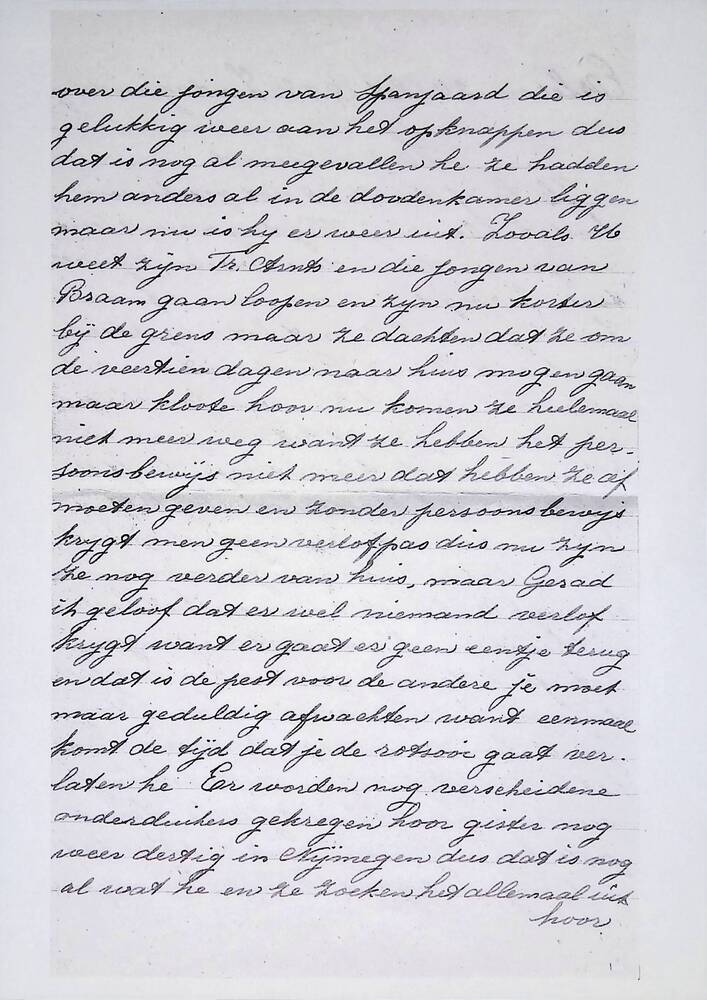 over die jongen van Spanjaard die is
gelukkig weer aan het opknappen dus
dat is nog al meegevallen he ze hadden
hem anders al in de doodenkamer liggen
maar nu is hy er weer uit. Zooals U
weet zyn Tr. Arnts en die jongen van
Braam gaan loopen en zyn nu korter
by de grens maar ze dachten dat ze om
de veertien dagen naar huis mogen gaan
maar kloote hoor nu komen ze heelemaal
niet meer weg want ze hebben het per-
soonsbewijs niet meer dat hebben ze af
moeten geven en zonder persoonsbewijs
krygt men geen verlofpas dus nu zyn
ze nog verder van huis, maar Gerad
ik geloof dat er wel niemand verlof
krygt want er gaat er geen eentje terug
en dat is de pest voor de andere je moet
maar geduldig afwachten want eenmaal
komt de tijd dat je de rotsooi gaat ver-
laten he Er worden nog verscheidene
onderduikers gekregen hoor gister nog
weer dertig in Nijmegen dus dat is nog
al wat he en ze zoeken het allemaal uit
hoor